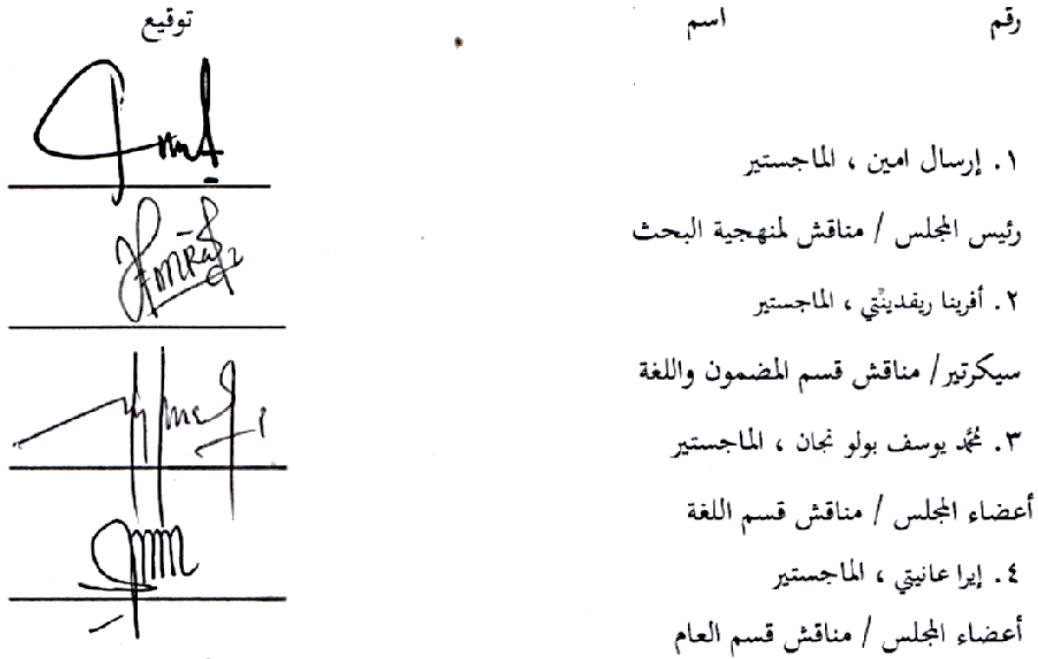 رقم اسم توقيع
١. إرسال امين ، الماجستير
رئيس المجلس / مناقش لمنهجية البحث
٢. أفرينا ريفدينْتي ، الماجستير
سيكرتير/ مناقش قسم المضمون واللغة
٣. مُحَّد يوسف بولو نجان ، الماجستير
أعضاء المجلس / مناقش قسم اللغة
٤. إيرا عانيتي ، الماجستير
أعضاء المجلس / مناقش قسم العام